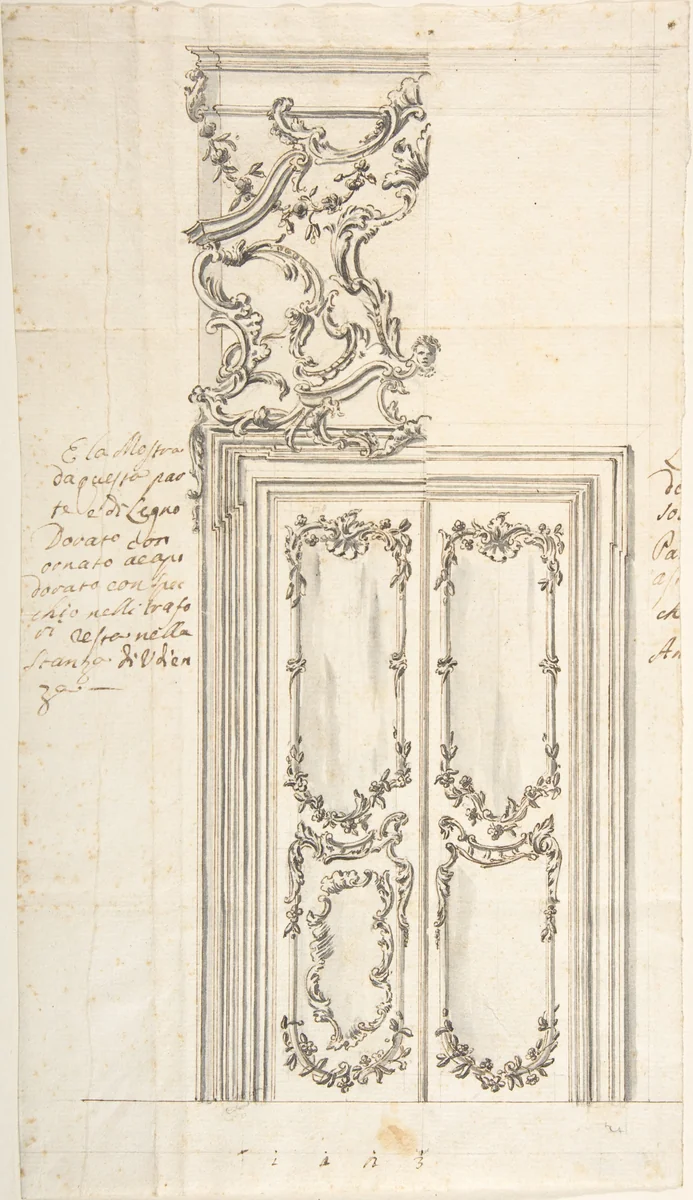 E la Mostra
da questa par
te e di Legno
Dorato con
ornato a capi
dorato con spec
chio nelli trafo
ri resta nella
Stanza di Udien
za
So
Pa
ch
An
1 2 3
24